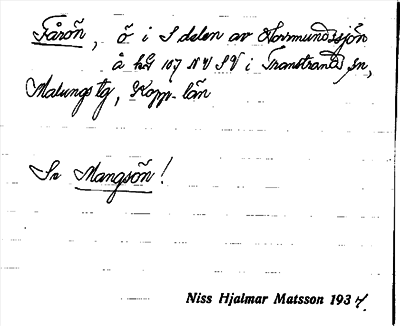 Fårön, ö i S delen av Horrmundsjön
å kbl 107 NV SV i Transtrand sn,
Malungs tg, Kopp. län
Se Mangsön!
Niss Hjalmar Matsson 1937.